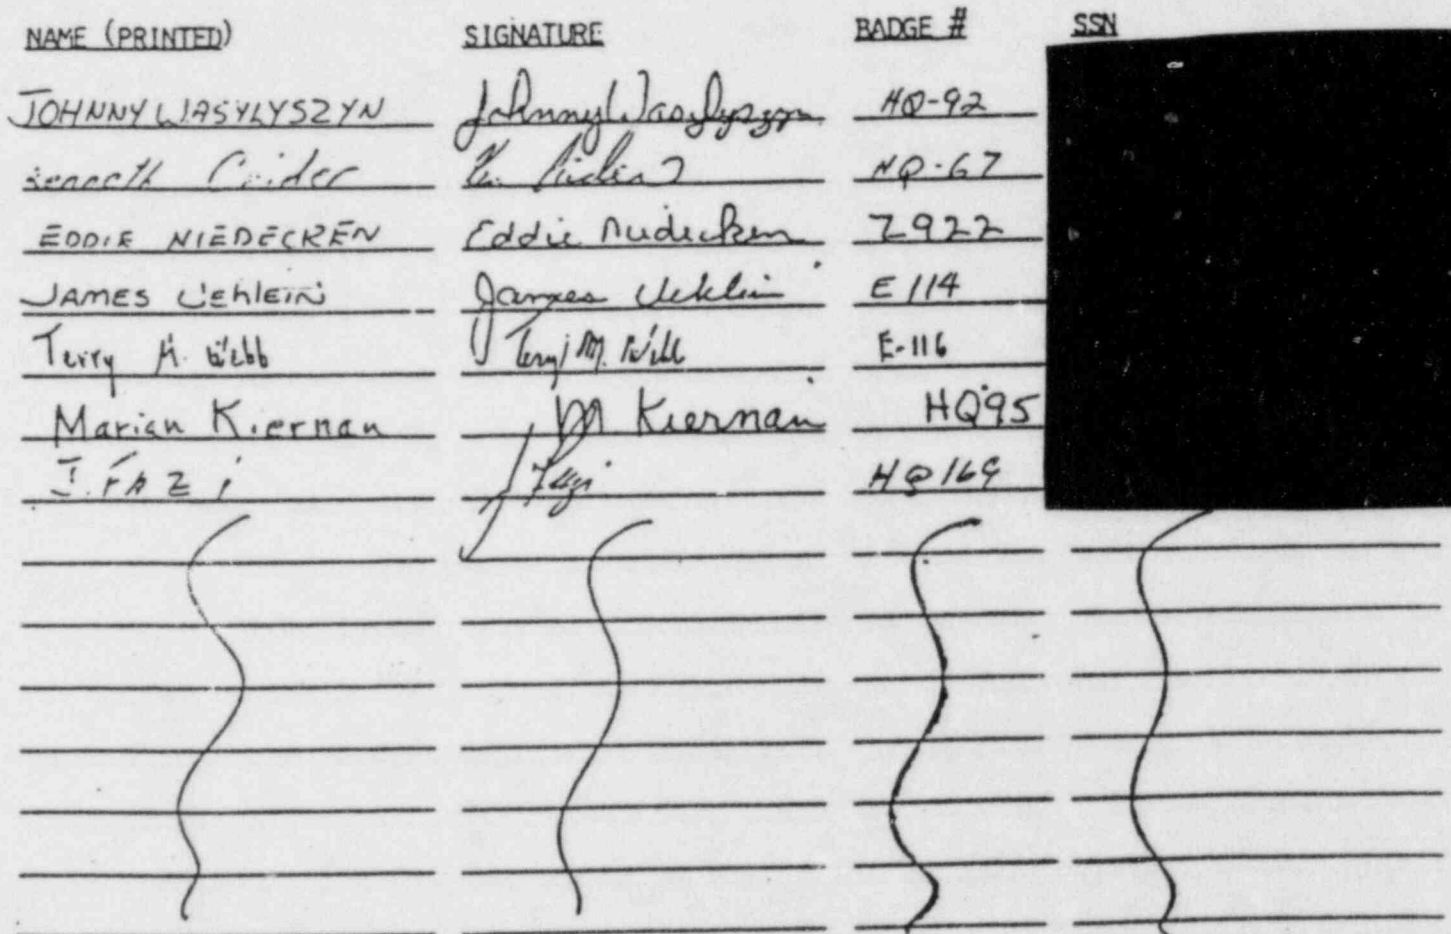 NAME (PRINTED) SIGNATURE BADGE # SSN
JOHNNY WASYLYSZYN Johnny Wasylyszyn HQ-92
Kenneth Crider HQ-67
EDDIE NIEDECKEN Eddie Niedecken Z922
JAMES UEHLEIN James Uehlein E 114
Terry M. Webb Terry M. Webb E-116
Marian Kiernan M Kiernan HQ95
J. FAZi J Fazi HQ169